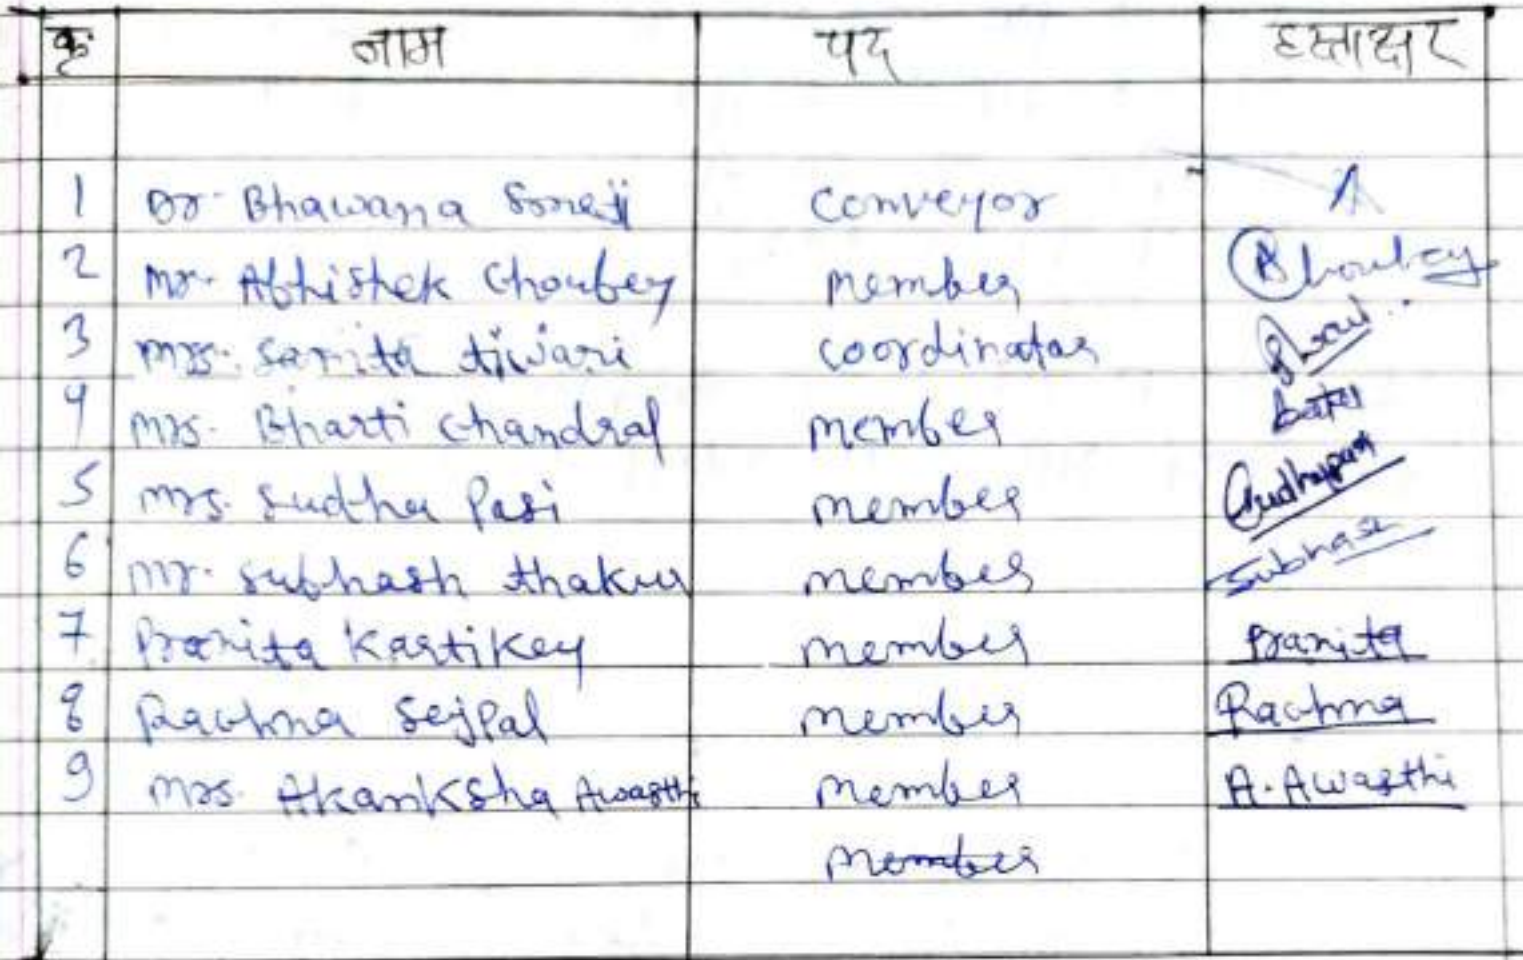 क्र. नाम पद हस्ताक्षर
1 Dr. Bhawana Soneji conveyor A
2 Mr. Abhishek Choubey member AChoubey
3 Mrs. Sarita tiwari coordinator
4 Mrs. Bharti Chandral member
5 Mrs. Sudha Pasi member Sudhapasi
6 Mr. Subhash thakur member Subhash
7 Pranita Kartikey member Pranita
8 Rachna Sejpal member Rachna
9 Mrs. Akanksha Awasthi member A. Awasthi
member